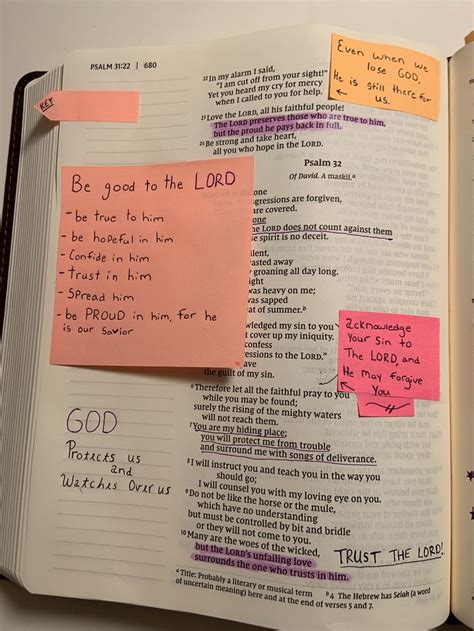 PSALM 31:22 | 680
KEY
22 In my alarm I said,
"I am cut off from your sight!"
Yet you heard my cry for mercy
when I called to you for help.
23 Love the LORD, all his faithful people!
The LORD preserves those who are true to him,
but the proud he pays back in full.
24 Be strong and take heart,
all you who hope in the LORD.
Even when we
lose GOD,
He is still there for
us.
Psalm 32
Of David. A maskil.a
Be good to the LORD
- be true to him
- be hopeful in him
- Confide in him
- Trust in him
- Spread him
- be PROUD in him, for he
is our savior
one
are forgiven,
are covered.
one
the LORD does not count against them
spirit is no deceit.
silent,
wasted away
groaning all day long.
night
was heavy on me;
was sapped
heat of summer.b
my sin to you
cover up my iniquity.
confess
to the LORD."
the guilt of my sin.
acknowledge
Your Sin to
The LORD, and
He may forgive
You
6 Therefore let all the faithful pray to you
while you may be found;
surely the rising of the mighty waters
will not reach them.
7 You are my hiding place;
you will protect me from trouble
and surround me with songs of deliverance.
GOD
Protects us
and
Watches Over us
8 I will instruct you and teach you in the way you
should go;
I will counsel you with my loving eye on you.
9 Do not be like the horse or the mule,
which have no understanding
but must be controlled by bit and bridle
or they will not come to you.
10 Many are the woes of the wicked,
but the LORD's unfailing love
surrounds the one who trusts in him.
TRUST THE LORD!
a Title: Probably a literary or musical term
b 4 The Hebrew has Selah (a word
of uncertain meaning) here and at the end of verses 5 and 7.